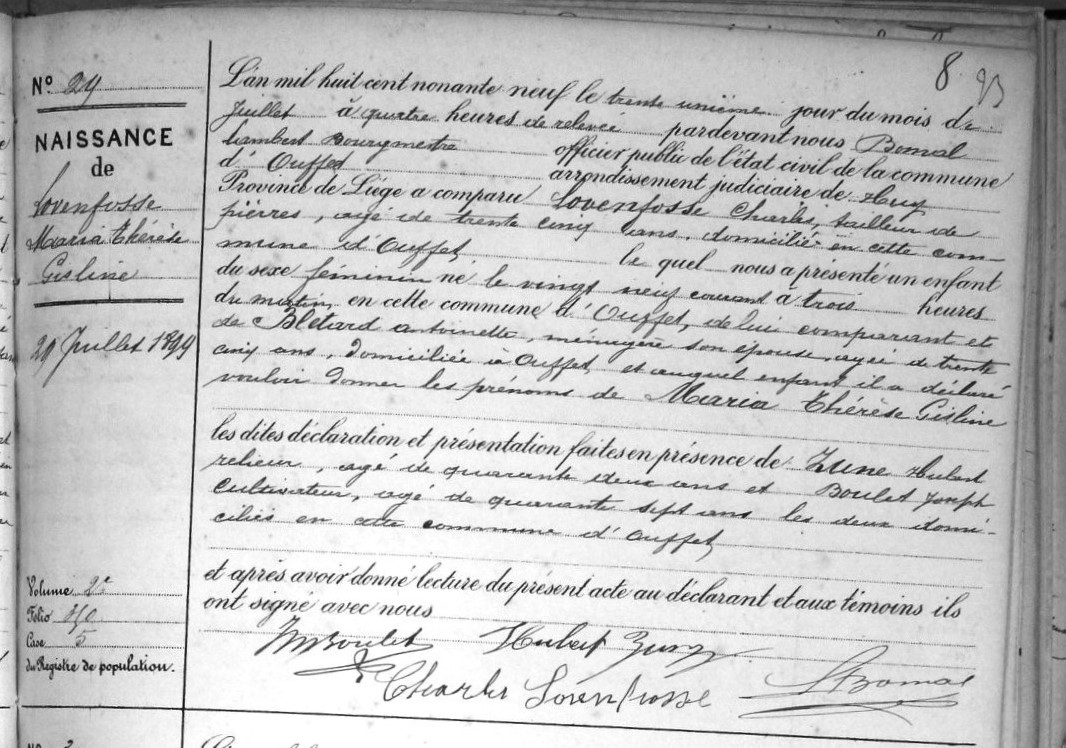 8
93
N° 24
NAISSANCE
de
Lovenfosse
Maria Thérèse
Gisline
29 Juillet 1899
Volume 2e
Folio
Case 5
du Registre de population.
L'an mil huit cent nonante neuf le trente unième jour du mois de
Juillet à quatre heures de relevée pardevant nous Bomal
Lambert Bourgmestre officier public de l'état civil de la commune
d'Ouffet arrondissement judiciaire de Huy
Province de Liége a comparu Lovenfosse Charles, tailleur de
pièrres, agé de trente cinq ans, domicilié en cette com-
mune d'Ouffet le quel nous a présenté un enfant
du sexe féminin né le vingt neuf courant à trois heures
du matin, en cette commune d'Ouffet, de lui comparant et
de Blétard antoinette, ménagère son épouse, agée de trente
cinq ans, domiciliée à Ouffet et auquel enfant il a déclaré
vouloir donner les prénoms de Maria Thérèse Gisline
les dites déclaration et présentation faites en présence de Zune Hubert
relieur, agé de quarante deux ans et Boulet Joseph
Cultivateur, agé de quarante sept ans les deux domi-
ciliés en cette commune d'Ouffet
et après avoir donné lecture du présent acte au déclarant et aux témoins ils
ont signé avec nous
Boulet Hubert Zune
Charles Lovenfosse LBomal
N°